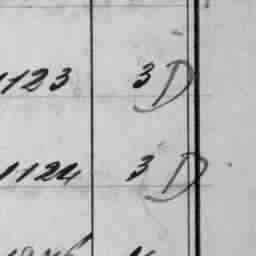 1123 3 D
1124 3 D